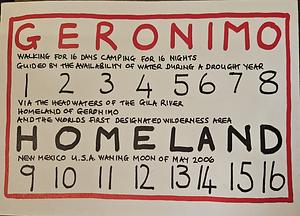 GERONIMO
WALKING FOR 16 DAYS CAMPING FOR 16 NIGHTS
GUIDED BY THE AVAILABILITY OF WATER DURING A DROUGHT YEAR
1 2 3 4 5 6 7 8
VIA THE HEADWATERS OF THE GILA RIVER
HOMELAND OF GERONIMO
AND THE WORLDS FIRST DESIGNATED WILDERNESS AREA
HOMELAND
NEW MEXICO U.S.A. WANING MOON OF MAY 2006
9 10 11 12 13 14 15 16